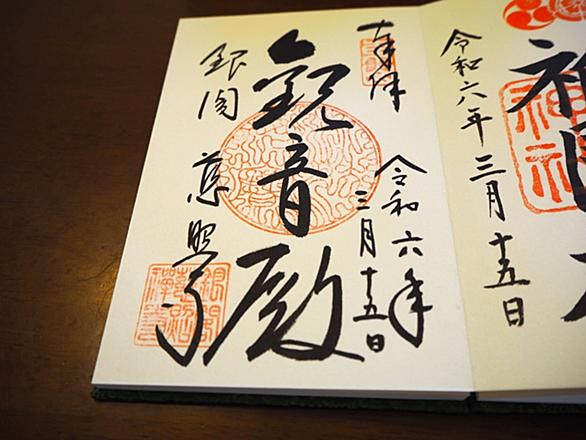 神社
令和六年三月十五日
奉拝
令和六年
三月十五日
観音殿
銀閣 慈照寺